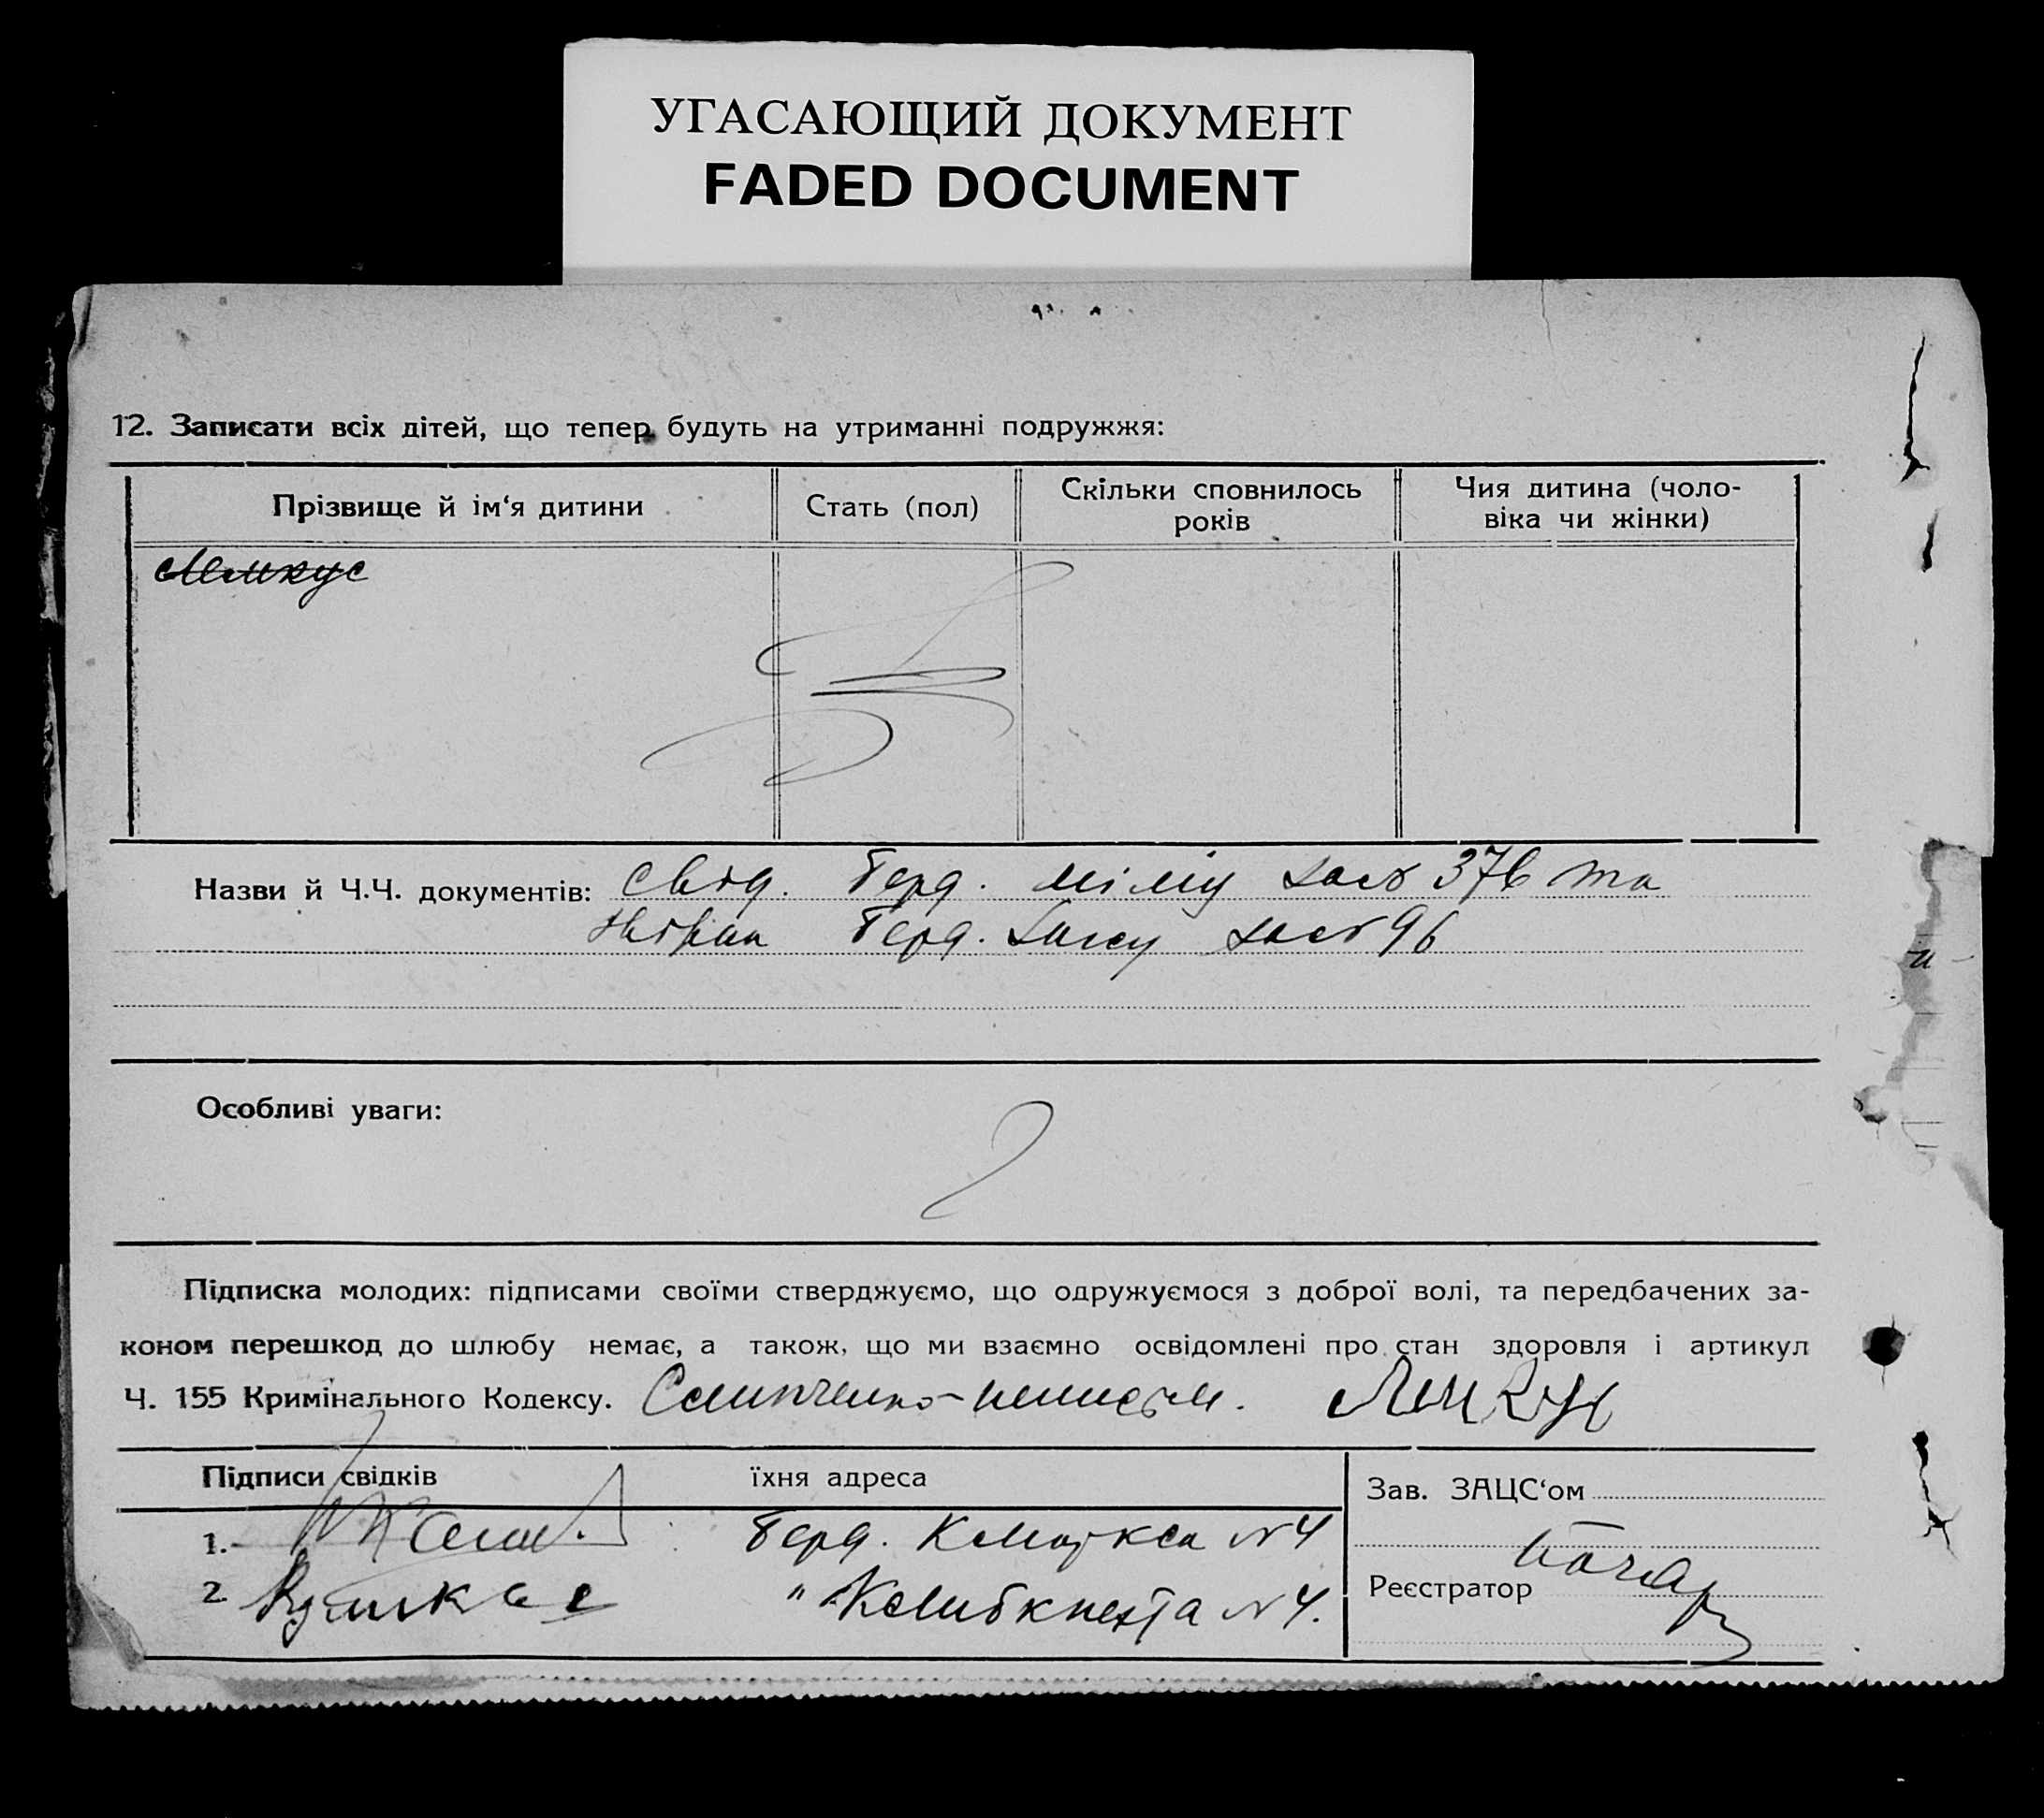 УГАСАЮЩИЙ ДОКУМЕНТ
FADED DOCUMENT
12. Записати всіх дітей, що тепер будуть на утриманні подружжя:
Прізвище й ім‘я дитини
Стать (пол)
Скільки сповнилось
років
Чия дитина (чоло-
віка чи жінки)
Назви й Ч.Ч. документів: Свід. Берд. за № 376 та
Берд. за № 96
Особливі уваги:
Підписка молодих: підписами своїми стверджуємо, що одружуємося з доброї волі, та передбачених за-
коном перешкод до шлюбу немає, а також, що ми взаємно освідомлені про стан здоровля і артикул
Ч. 155 Кримінального Кодексу.
Підписи свідків
їхня адреса
Зав. ЗАЦС‘ом
1. Берд. К Маркса № 4
2 " КЛибкнехта № 4.
Реєстратор